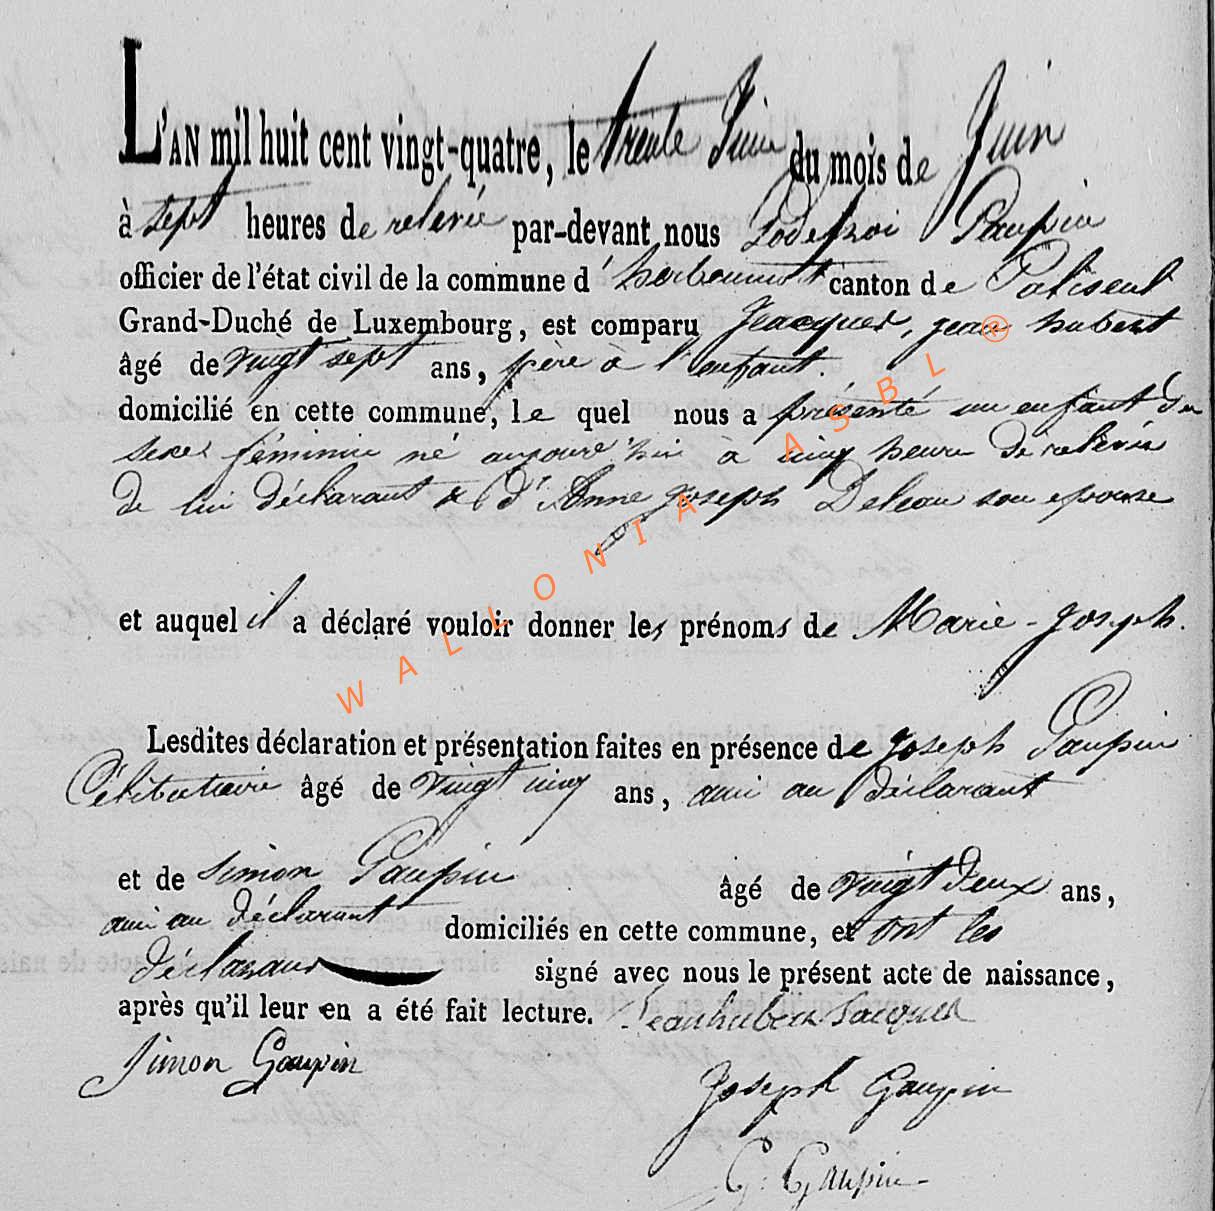 L'AN mil huit cent vingt-quatre, le trente Juin du mois de Juin
à sept heures de relevée par-devant nous Godefroi Gaupin
officier de l'état civil de la commune d' herbeumont canton de Paliseul
Grand-Duché de Luxembourg, est comparu Jacques, jean hubert
âgé de vingt sept ans, père à l'enfant.
domicilié en cette commune, le quel nous a présenté un enfant du
sexe féminin né aujourd'hui à cinq heure de relevée
de lui déclarant & d'Anne Joseph Deleau son epouse
et auquel il a déclaré vouloir donner les prénoms de Marie-Joseph.
Lesdites déclaration et présentation faites en présence de Joseph Gaupin
Célibataire âgé de vingt cinq ans, ami au déclarant
et de Simon Gaupin âgé de vingt deux ans,
ami au déclarant domiciliés en cette commune, et ont les
déclarans signé avec nous le présent acte de naissance,
après qu'il leur en a été fait lecture. Jeanhubert Jacques
Simon Gaupin
Joseph Gaupin
G. Gaupin
WALLONIA ASBL ®